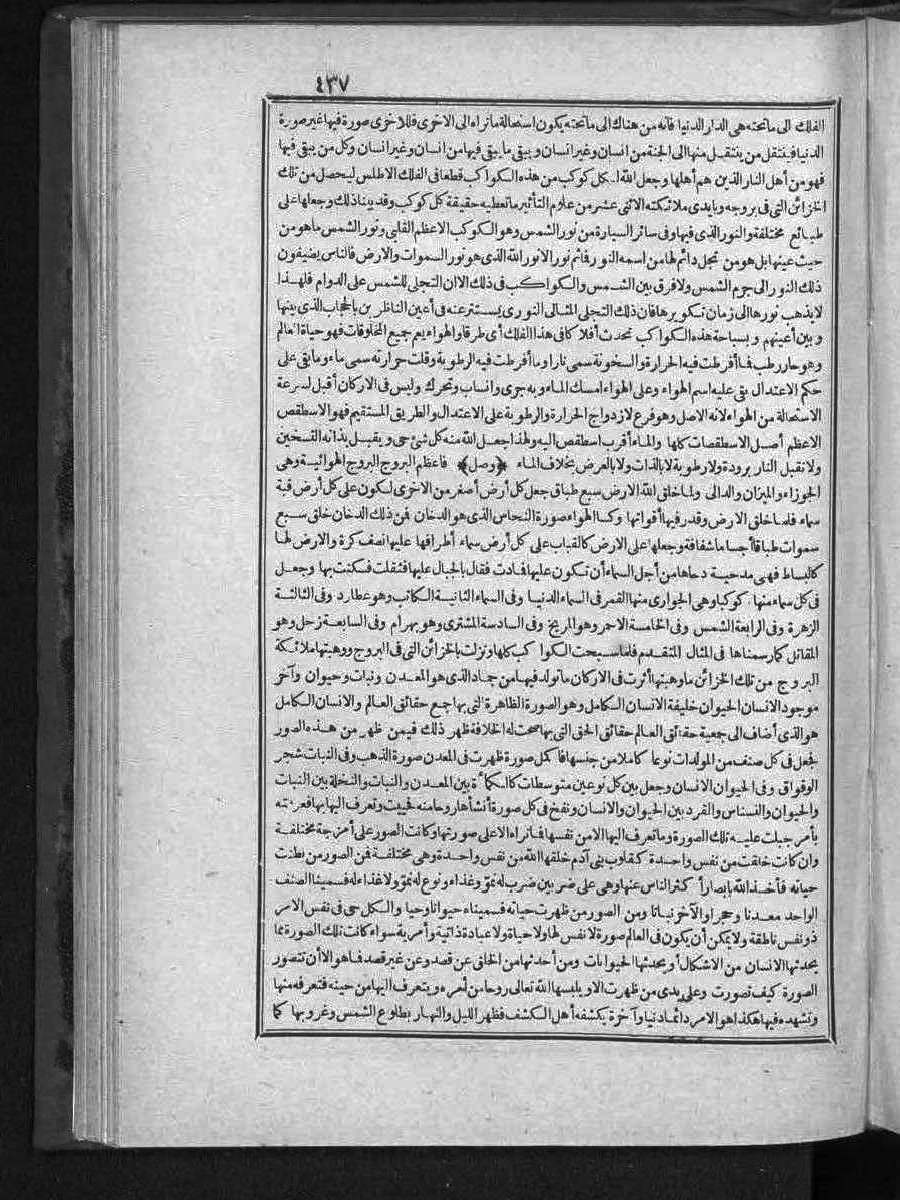 ٤٣٧
الفلك الى ما تحته هى الدار الدنيا فانه من هناك الى ما تحته يكون استحالة ما تراه الى الاخرى فللاخرى صورة فيها غير صورة
الدنيا فينتقل من ينتقل منها الى الجنة من انسان وغير انسان ويبقى ما يبقى فيها من انسان وغير انسان وكل من يبقى فيها
فهو من أهل النار الذين هم أهلها وجعل الله لكل كوكب من هذه الكواكب قطعا فى الفلك الاطلس ليحصل من تلك
الخزائن التى فى بروجه وبايدى ملائكته الاثنى عشر من علوم التأثير ما تعطيه حقيقة كل كوكب وقد بينا ذلك وجعلها على
طبائع مختلفة والنور الذى فيها وفى سائر السيارة من نور الشمس وهو الكوكب الاعظم القلبى ونور الشمس ما هو من
حيث عينها بل هو من تجل دائم لها من اسمه النور فاثم نور الانور الله الذى هو نور السموات والارض فالناس يضيفون
ذلك النور الى جرم الشمس ولا فرق بين الشمس والكواكب فى ذلك الا ان التجلى للشمس على الدوام فلهذا
لا يذهب نورها الى زمان تكويرها فان ذلك التجلى المثالى النورى يستتر عنه فى أعين الناظرين بالحجاب الذى بينها
وبين أعينهم وبسباحة هذه الكواكب تحدث أفلاكا فى هذا الفلك أى طرقا والهواء يعم جميع المخلوقات فهو حياة العالم
وهو حار رطب فما أفرطت فيه الحرارة والسخونة سمى نارا وما أفرطت فيه الرطوبة وقلت حرارته سمى ماء وما بقى على
حكم الاعتدال بقى عليه اسم الهواء وعلى الهواء امسك الماء وبه جرى وانساب وتحرك وليس فى الاركان أقبل لسرعة
الاستحالة من الهواء لانه الاصل وهو فرع لازدواج الحرارة والرطوبة على الاعتدال والطريق المستقيم فهو الاسطقص
الاعظم أصل الاسطقصات كلها والماء أقرب اسطقص اليه ولهذا جعل الله منه كل شئ حى ويقبل بذاته التسخين
ولا تقبل النار برودة ولا رطوبة لا بالذات ولا بالعرض بخلاف الماء ﴿وصل﴾ فاعظم البروج البروج الهوائية وهى
الجوزاء والميزان والدالى ولما خلق الله الارض سبع طباق جعل كل أرض أصغر من الاخرى لتكون على كل أرض قبة
سماء فلما خلق الارض وقدر فيها أقواتها وكسا الهواء صورة النحاس الذى هو الدخان فمن ذلك الدخان خلق سبع
سموات طباقا أجساما شفافة وجعلها على الارض كالقباب على كل أرض سماء أطرافها عليها نصف كرة والارض لها
كالبساط فهى مدحية دحاها من أجل السماء أن تكون عليها فمادت فقال بالجبال عليها فثقلت فسكنت بها وجعل
فى كل سماء منها كوكبا وهى الجوارى منها القمر فى السماء الدنيا وفى السماء الثانية الكاتب وهو عطارد وفى الثالثة
الزهرة وفى الرابعة الشمس وفى الخامسة الاحمر وهو المريخ وفى السادسة المشترى وهو بهرام وفى السابعة زحل وهو
المقاتل كما رسمناها فى المثال المتقدم فلما سبحت الكواكب كلها ونزلت بالخزائن التى فى البروج ووهبتها ملائكة
البروج من تلك الخزائن ما وهبتها أثرت فى الاركان ما تولد فيها من جماد الذى هو المعدن ونبات وحيوان وآخر
موجود الانسان الحيوان خليفة الانسان الكامل وهو الصورة الظاهرة التى بها جمع حقائق العالم والانسان الكامل
هو الذى أضاف الى جمعية حقائق العالم حقائق الحق التى بها صحت له الخلافة ظهر ذلك فيمن ظهر من هذه الصور
فجعل فى كل صنف من المولدات نوعا كاملا من جنسها فا كمل صورة ظهرت فى المعدن صورة الذهب وفى النبات شجر
الوقواق وفى الحيوان الانسان وجعل بين كل نوعين متوسطات كالكمأة بين المعدن والنبات والنخلة بين النبات
والحيوان والنسناس والقرد بين الحيوان والانسان ونفخ فى كل صورة أنشأها روحا منه فحييت وتعرف اليها بها فعرفته
بأمر جبلت عليه تلك الصورة وما تعرف اليها الا من نفسها فما تراه الا على صورتها وكانت الصور على أمزجة مختلفة
وان كانت خلقت من نفس واحدة كقلوب بنى آدم خلقها الله من نفس واحدة وهى مختلفة فمن الصور من بطنت
حياته فأخذ الله بابصار أكثر الناس عنها وهى على ضربين ضرب له نمو وغذاء ونوع له نمو ولا غذاء له فسمينا الصنف
الواحد معدنا وحجرا والآخر نباتا ومن الصور من ظهرت حياته فسميناه حيوانا وحيا والكل حى فى نفس الامر
ذو نفس ناطقة ولا يمكن أن يكون فى العالم صورة لا نفس لها ولا حياة ولا عبادة ذاتية وأمرية سواء كانت تلك الصورة مما
يحدثها الانسان من الاشكال أو يحدثها الحيوانات ومن أحدثها من الخلق عن قصد وعن غير قصد فما هو الا أن تتصور
الصورة كيف تصورت وعلى يدى من ظهرت الا ويلبسها الله تعالى روحا من أمره ويتعرف اليها من حينه فتعرفه منها
وتشهده فيها هكذا هو الامر دائما دنيا وآخرة يكشفه أهل الكشف فظهر الليل والنهار بطلوع الشمس وغروبها كما